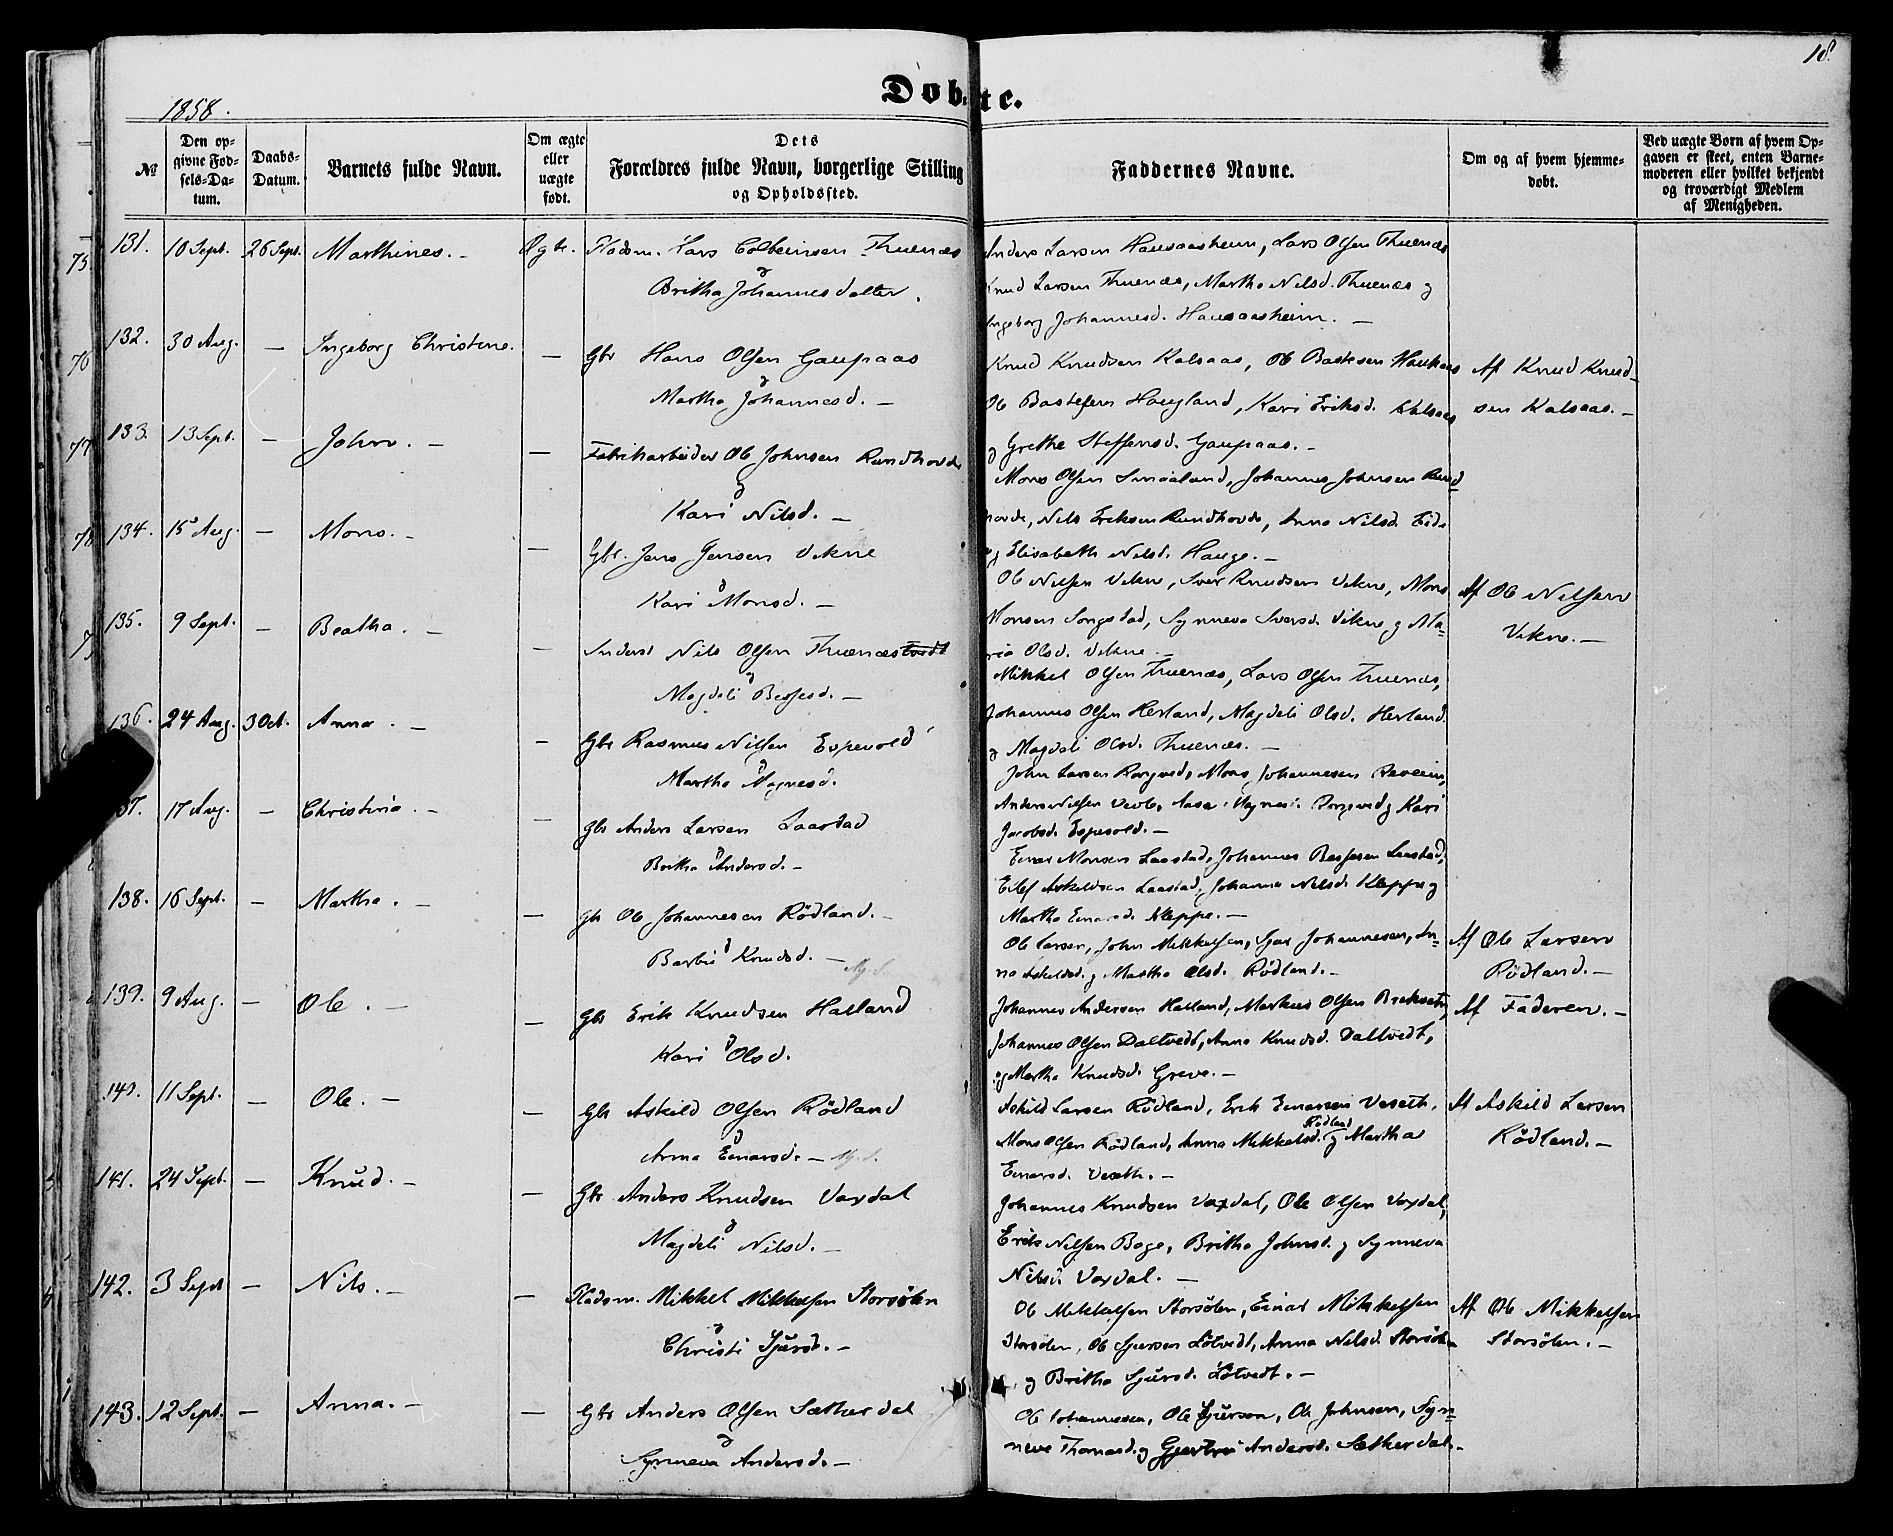 18.
Døbte.
1858.
№
Den opgivne Fødsels-Datum.
Daabs-Datum.
Barnets fulde Navn.
Om ægte eller uægte født.
Dets Forældres fulde Navn, borgerlige Stilling og Opholdssted.
Faddernes Navne.
Om og af hvem hjemmedøbt.
Ved uægte Børn af hvem Opgaven er skeet, enten Barnemoderen eller hvilket bekjendt og troværdigt Medlem af Menigheden.
131. 10 Sept. 26 Sept. Marthines. - Ægte. Pladsm. Lars Colbeinsen Thuenæs
Britha Johannesdatter.
Anders Larsen Hausaasheim, Lars Olsen Thuenæs
Knud Larsen Thuenæs, Martha Nilsd. Thuenæs og
Ingeborg Johannesd. Hausaasheim. —
132. 30 Aug. — Ingeborg Christine. — Gbr Hans Olsen Gaupaas
og
Martha Johannesd. —
Knud Knudsen Kalsaas, Ole
Kari Eriksd. Kalsaas
og Grethe Steffensd. Gaupaas. —
Af Knud Knud-
sen Kalsaas. —
133. 13 Sept. — John. — — Fabrikarbeider Ole Johnsen Rundhovde
og
Kari Nilsd. —
Mons Olsen Smaaland, Johannes Johnsen Rund
hovde, Nils Eriksen Rundhovde, Anna Nilsd. Eide
og Elisabeth Nilsd. Hauge. —
134. 15 Aug. — Mons. — — Gbr. Jens Jensen Vikne
og
Kari Monsd. —
Ole Nilsen Vikne, Sver Knudsen Vikne, Mons
Monsen Songstad, Synneva Sversd. Vikne og Ma-
ria Olsd. Vikne. —
Af Ole Nilsen
Vikne. —
135. 9 Sept. — Beatha. — — Inderst Nils Olsen Thuenæs
og
Magdeli
Mikkel Olsen Thuenæs, Lars Olsen Thuenæs,
Johannes Olsen Herland, Magdeli Olsd. Herland
og Magdeli Olsd. Thuenæs. —
136. 24 Aug. 3 Oct. Anna. — — Gbr Rasmus Nilsen Espevold
og
Martha Magnesd.
John Larsen Mons Johannesen
Anders Nilsen og Kari
Jacobsd. Espevold. —
137. 17 Aug. — Christina. — — Gbr Anders Larsen Laastad
og
Britha Andersd. —
Einar Monsen Laastad, Johannes Laastad,
Eilef Askildsen Laastad, Johanna Nilsd. Kleppe og
Martha Einarsd. Kleppe. —
138. 16 Sept. — Martha. — — Gbr Ole Johannesen Rödland. —
og
Barbro Knudsd. —
Ole Larsen, John Mikkelsen, Johannesen, An-
na Askildsd. og Martha Olsd. Rödland. —
Af Ole Larsen
Rödland. —
139. 9 Aug. — Ole. — — Gbr Erik Knudsen Halland
og
Kari Olsd.
Johannes Andersen Halland, Markus Olsen
Johannes Olsen Daltvedt, Anna Knudsd. Daltvedt,
og Martha Knudsd. Greve. —
Af Faderen. —
140. 11 Sept. — Ole. — — Gbr Askild Olsen Rödland
og
Anna Einarsd. —
Askild Larsen Rödland, Erik Einarsen Veseth,
Mons Olsen Rödland, Anna Mikkelsd. Rödland og Martha
Einarsd. Veseth. —
Af Askild Larsen
Rödland. —
141. 24 Sept. — Knud. — — Gbr Anders Knudsen Vaxdal
og
Magdeli Nilsd. —
Johannes Knudsen Vaxdal, Ole Olsen Vaxdal,
Erik Nilsen Boge, Britha Johnsd. og Synneva
Nilsd. Vaxdal. —
142. 3 Sept — Nils. — — Pladsm. Mikkel Mikkelsen Storsölen
og
Christi Sjursd. —
Ole Mikkelsen Storsölen, Einar Mikkelsen
Storsölen, Ole Sjursen Lötvedt, Anna Nilsd. Storsölen
og Britha Sjursd. Lötvedt. —
Af Ole Mikkelsen
Storsölen. —
143. 12 Sept. — Anna. — — Gbr Anders Olsen Sætherdal
og
Synneva Andersd. —
Ole Johannesen, Ole Sjursen, Ole Johnsen, Syn-
neve Thomasd. og Gjertru Andersd. Sætherdal. —